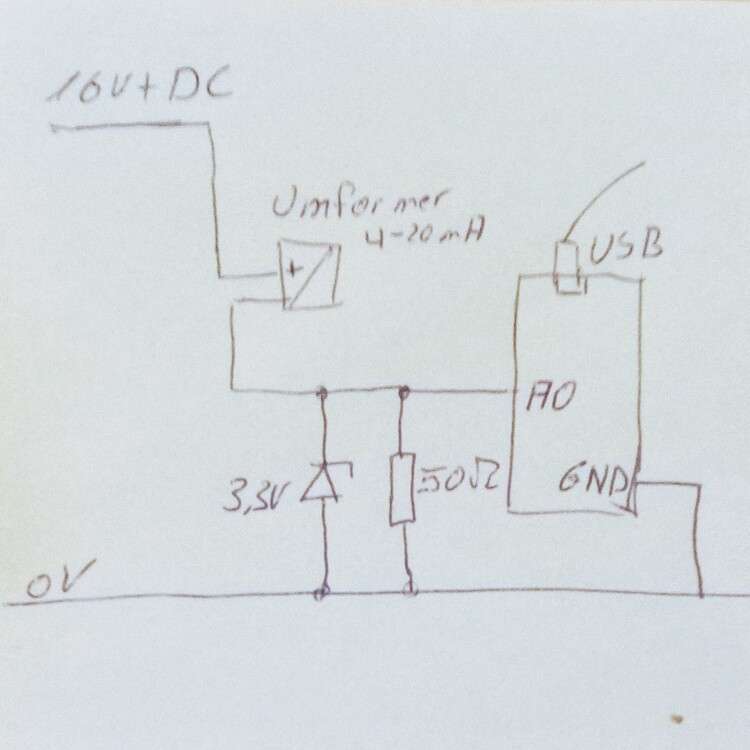 16V+DC
Umformer
4-20mA
USB
A0
3,3V
50Ω
GND
0V
+